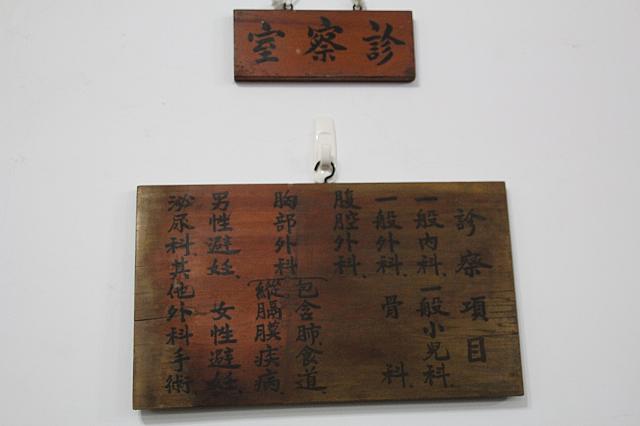 診察室
診察項目
一般內科、一般小兒科、
一般外科、骨科、
腹腔外科、
胸部外科(包含肺、食道、
縱膈膜疾病、
男性避妊、女性避妊、
泌尿科、其他外科手術、